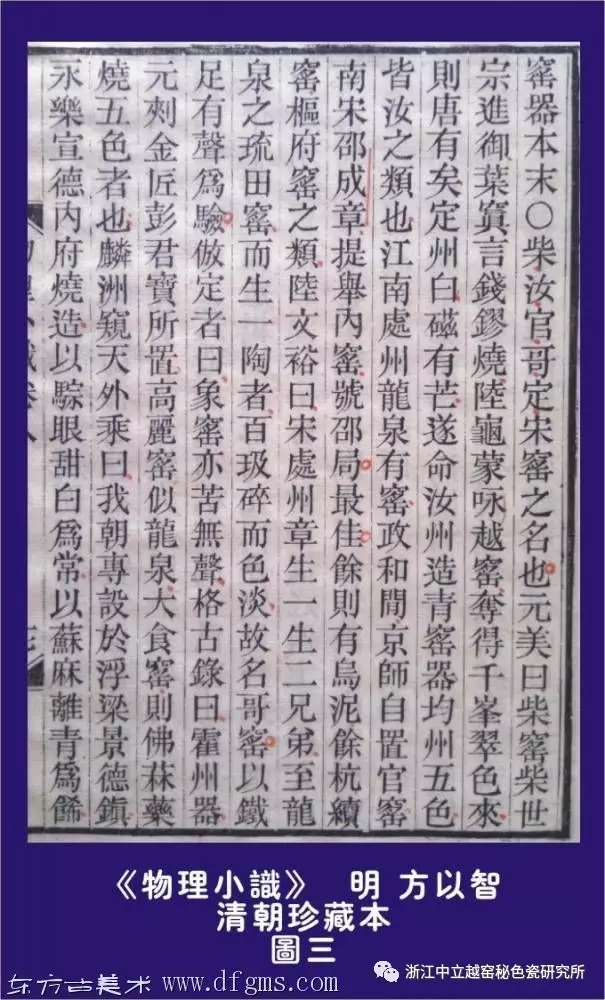 窰器本末○柴汝官哥定宋窰之名也元美曰柴窰柴世
宗進御葉寘言錢鏐燒陸龜蒙咏越窰奪得千峯翠色來
則唐有矣定州白磁有芒遂命汝州造青窰器均州五色
皆汝之類也江南處州龍泉有窰政和間京師自置官窰
南宋邵成章提舉內窰號邵局最佳餘則有烏泥餘杭續
窰樞府窰之類陸文裕曰宋處州章生一生二兄弟至龍
泉之琉田窰而生一陶者百圾碎而色淡故名哥窰以鐵
足有聲爲驗倣定者曰象窰亦苦無聲格古錄曰霍州器
元剡金匠彭君寶所置高麗窰似龍泉大食窰則佛菻藥
燒五色者也麟洲窺天外乘曰我朝專設於浮梁景德鎮
永樂宣德內府燒造以騌眼甜白爲常以蘇麻離青爲餙
《物理小識》 明 方以智
清朝珍藏本
圖三
东方古美术 www.dfgms.com
浙江中立越窑秘色瓷研究所